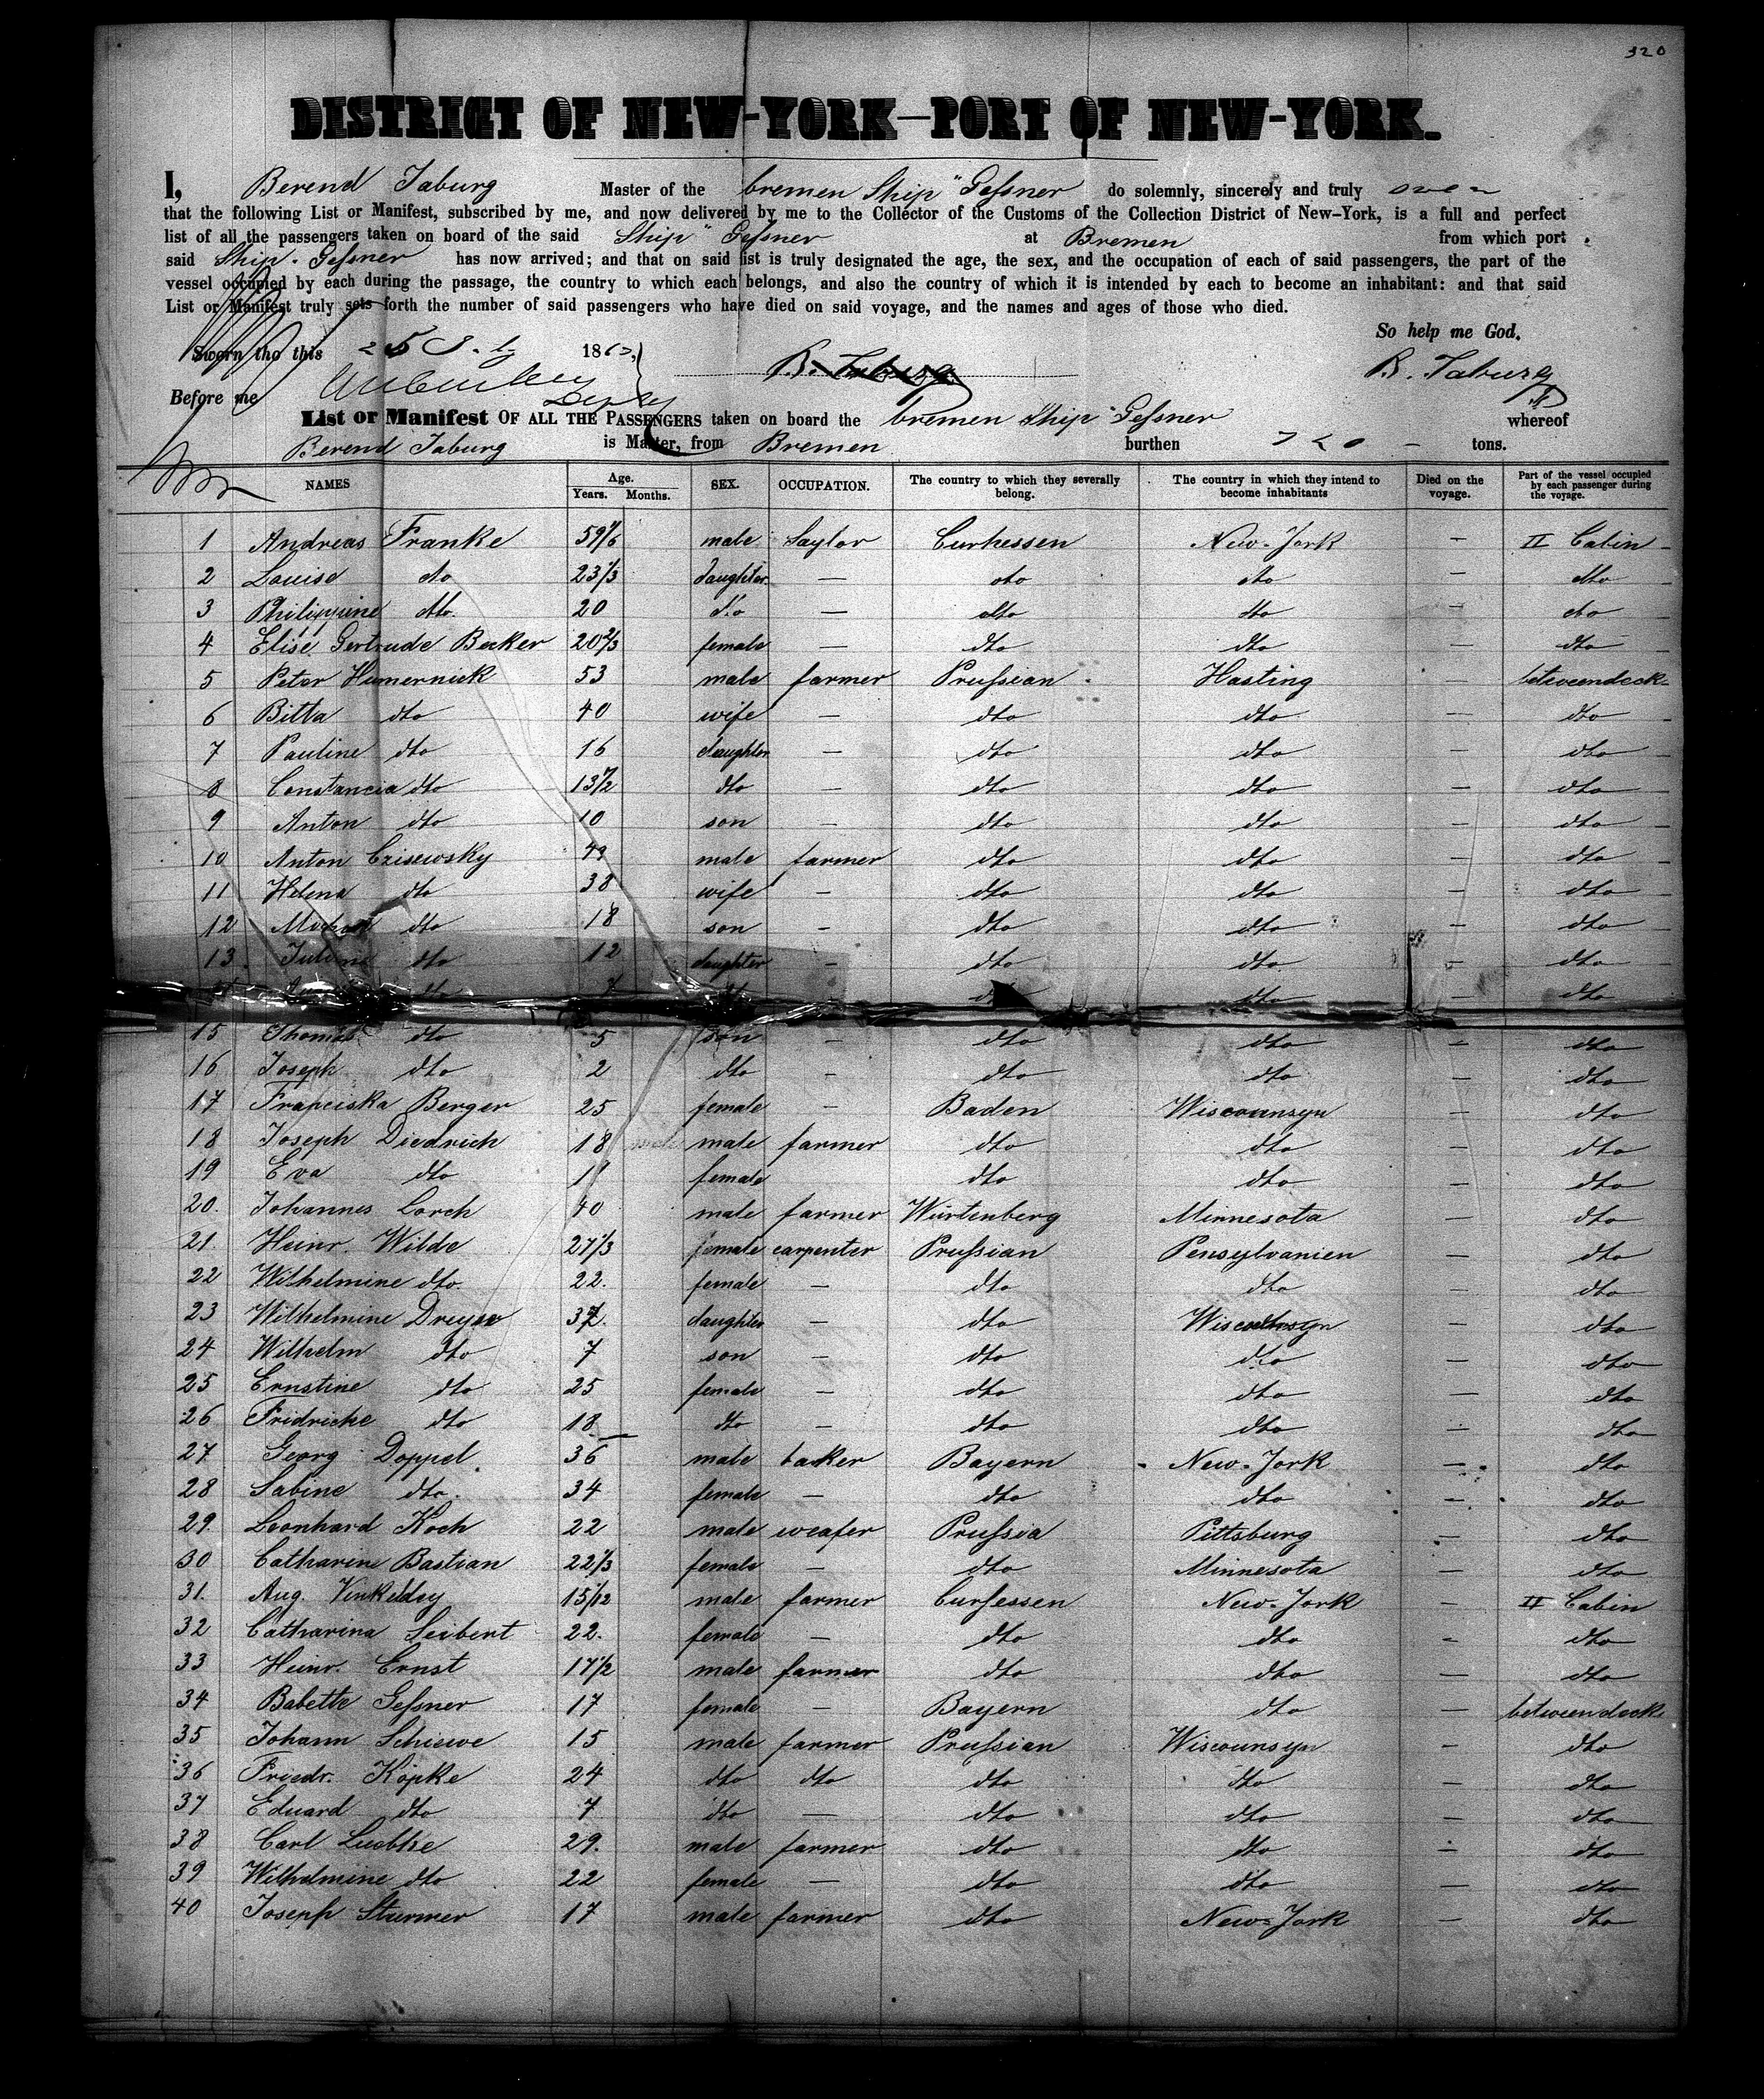 320
DISTRICT OF NEW-YORK—PORT OF NEW-YORK.
I, Berend Taburg Master of the bremen Ship "Geßner do solemnly, sincerely and truly
that the following List or Manifest, subscribed by me, and now delivered by me to the Collector of the Customs of the Collection District of New-York, is a full and perfect
list of all the passengers taken on board of the said Ship "Geßner at Bremen from which port
said Ship. Geßner has now arrived; and that on said list is truly designated the age, the sex, and the occupation of each of said passengers, the part of the
vessel occupied by each during the passage, the country to which each belongs, and also the country of which it is intended by each to become an inhabitant: and that said
List or Manifest truly sets forth the number of said passengers who have died on said voyage, and the names and ages of those who died.
So help me God.
Sworn tho this 25 186 B. Taburg B. Taburg
Before me
List or Manifest OF ALL THE PASSENGERS taken on board the bremen Ship "Geßner whereof
Berend Taburg is Master, from Bremen burthen tons.
NAMES Age. Years. Months. SEX. OCCUPATION. The country to which they severally belong. The country in which they intend to become inhabitants Died on the voyage. Part of the vessel occupied by each passenger during the voyage.
1 Andreas Franke 59 1/6 male Saylor Curhessen New-York — II Cabin
2 Louise dto 23 1/3 daughter — dto dto — dto
3 Philippine dto. 20 dto — dto dto — dto
4 Elise Gertrude Becker 20 2/3 female — dto dto — dto
5 Peter Humernick 53 male farmer Prußian Hasting — betweendeck
6 Bitta dto 40 wife — dto dto — dto
7 Pauline dto 16 daughter — dto dto — dto
8 Constancia dto 13 1/2 dto — dto dto — dto
9 Anton dto 10 son — dto dto — dto
10 Anton Czisewsky 49 male farmer dto dto — dto
11 Helena dto 38 wife — dto dto — dto
12 dto 18 son — dto dto — dto
13 dto 12 daughter — dto dto — dto
dto 7 dto — dto
15 Thomas dto 5 son — dto dto — dto
16 Joseph dto 2 dto — dto dto — dto
17 Franciska Berger 25 female — Baden Wiscounsyn — dto
18 Joseph Diedrich 18 male farmer dto dto — dto
19 Eva dto female dto dto — dto
20. Johannes Lorch 40 male farmer Würtenberg Minnesota — dto
21. Heinr. Wilde 27 1/3 female carpenter Prußian Pensylvanien — dto
22 Wilhelmine dto. 22. female — dto dto — dto
23 Wilhelmine Dreyer 37. daughter — dto — dto
24 Wilhelm dto 7 son — dto dto — dto
25 Ernstine dto 25 female — dto dto — dto
26 Fridricke dto 18 dto — dto dto — dto
27 Georg Doppel 36 male baker Bayern New-York — dto
28 Sabine dto. 34 female — dto dto — dto
29. Leonhard Koch 22 male weafer Prußia Pittsburg — dto
30 Catharine Bastian 22 1/3 female — dto Minnesota — dto
31. Aug. 15 1/12 male farmer Curhessen New-York — II Cabin
32 Catharina Seibert 22. female — dto dto — dto
33 Heinr. Ernst 17 1/2 male farmer dto dto — dto
34 Babette Geßner 17 female — Bayern dto — betweendeck
35 Johann Schiewe 15 male farmer Prußian Wiscounsyn — dto
36 Friedr. Köpke 24 dto dto dto dto — dto
37 Eduard dto 7 dto — dto dto — dto
38 Carl Luebke 29. male farmer dto dto — dto
39 Wilhelmine dto 22 female — dto dto — dto
40 Joseph Sturmer 17 male farmer dto New-York — dto